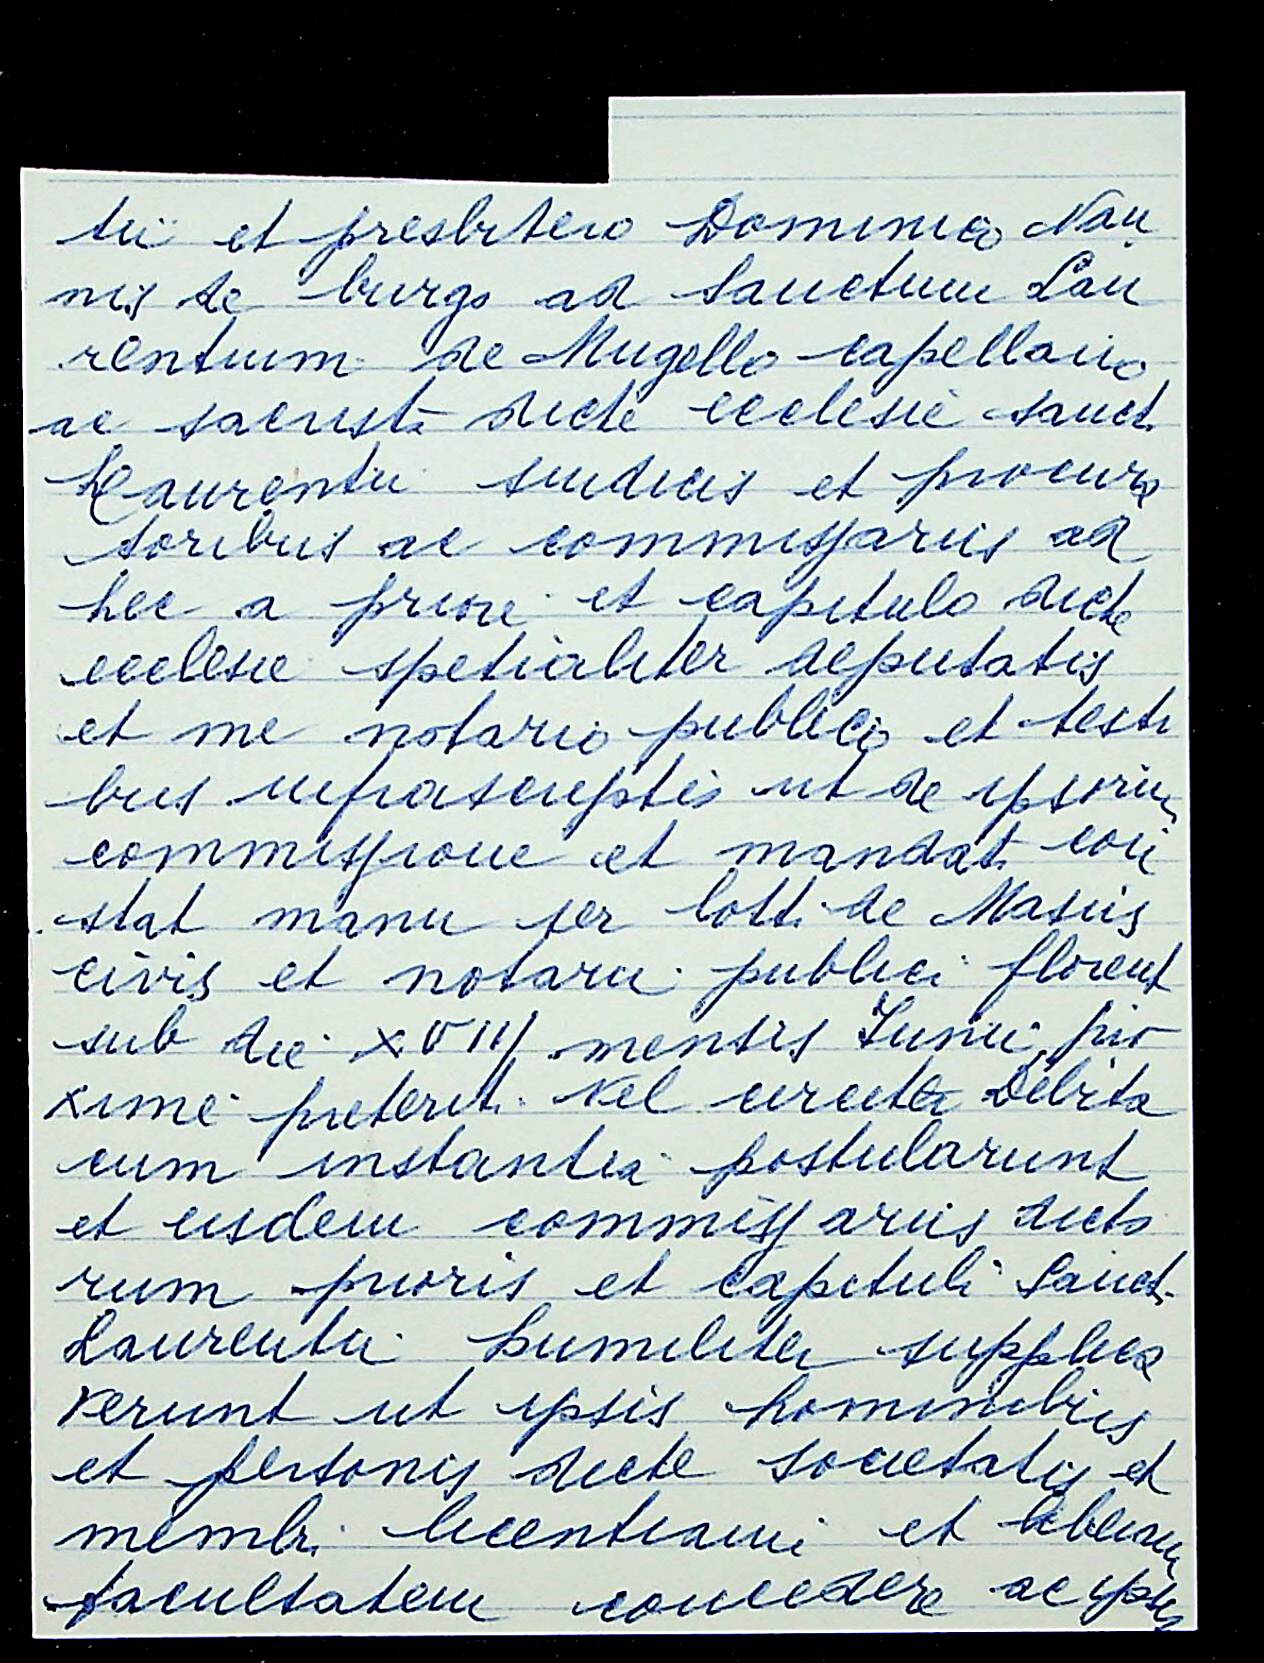 tii et presbitero Dominico Nan
nis de burgo ad Sanctum Lau
rentium de Mugello capellano
ac sacrist. dicte ecclesie sanct.
Laurentii sindicis et procura
toribus ac commissariis ad
hec a priore et capitulo dicte
ecclesie spetialiter deputatis
et me notario publico et testi
bus infrascriptis ut de ipsorum
commissione et mandat. con
stat manu ser lott. de Masiis
civis et notarii publici florent
sub die XVIII mensis Iunii pro
xime preterit. vel circiter Debita
cum instantia postularunt
et eisdem commissariis dicto
rum prioris et capituli Sanct.
Laurentii humiliter supplica
verunt ut ipsis hominibus
et personis dicte societatis et
membr. licentiam et liberam
facultatem concedere ac ipsis